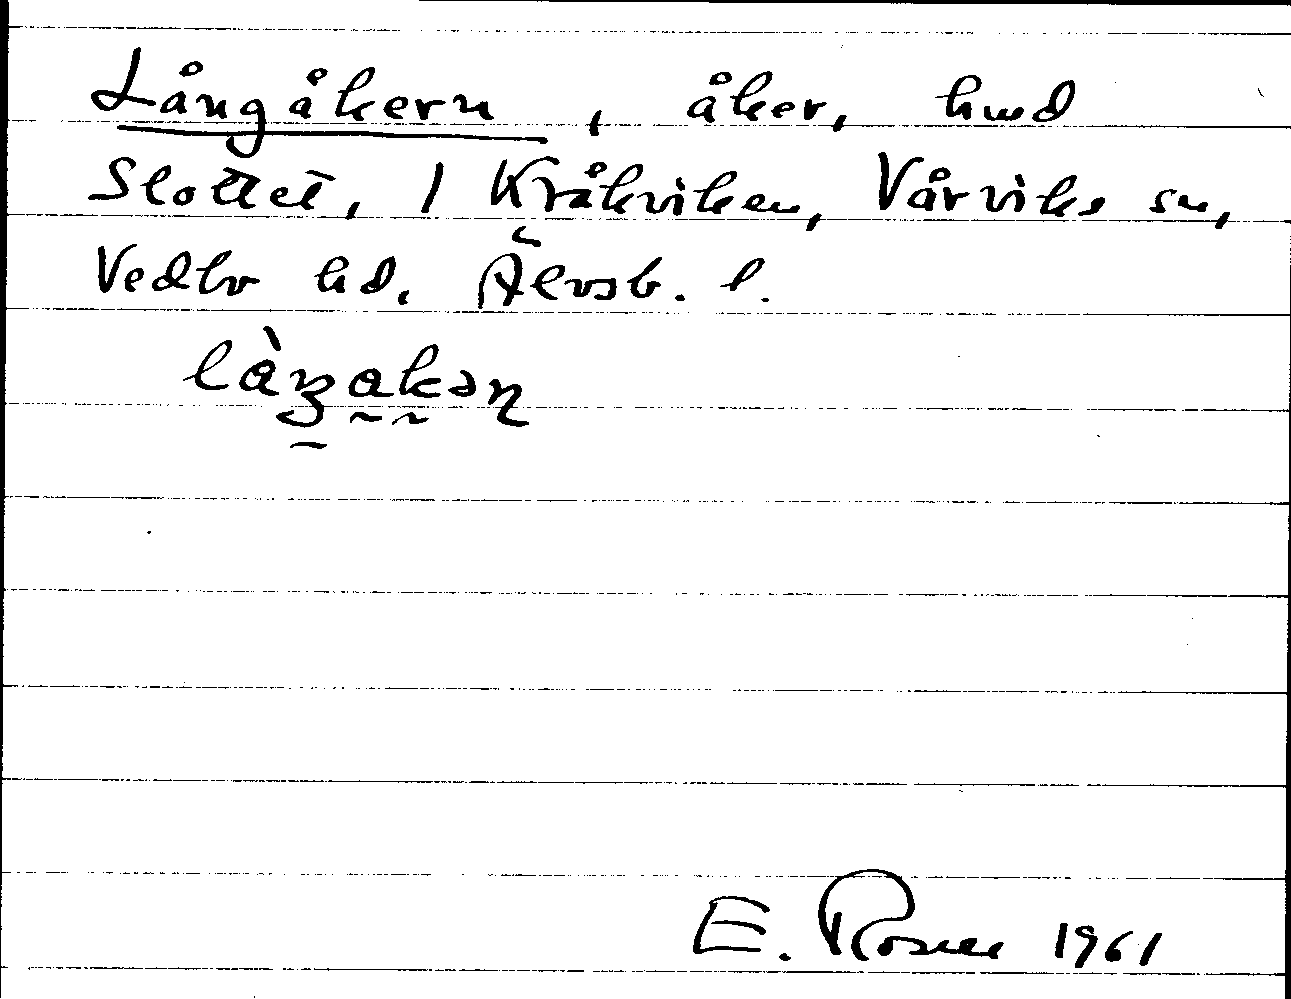 Långåkern, åker, hmd
Slottet, 1 Kråkviken, Vårviks sn,
Vedbo hd. Älvsb. l.
làŋakəɳ
E. Rosell 1961